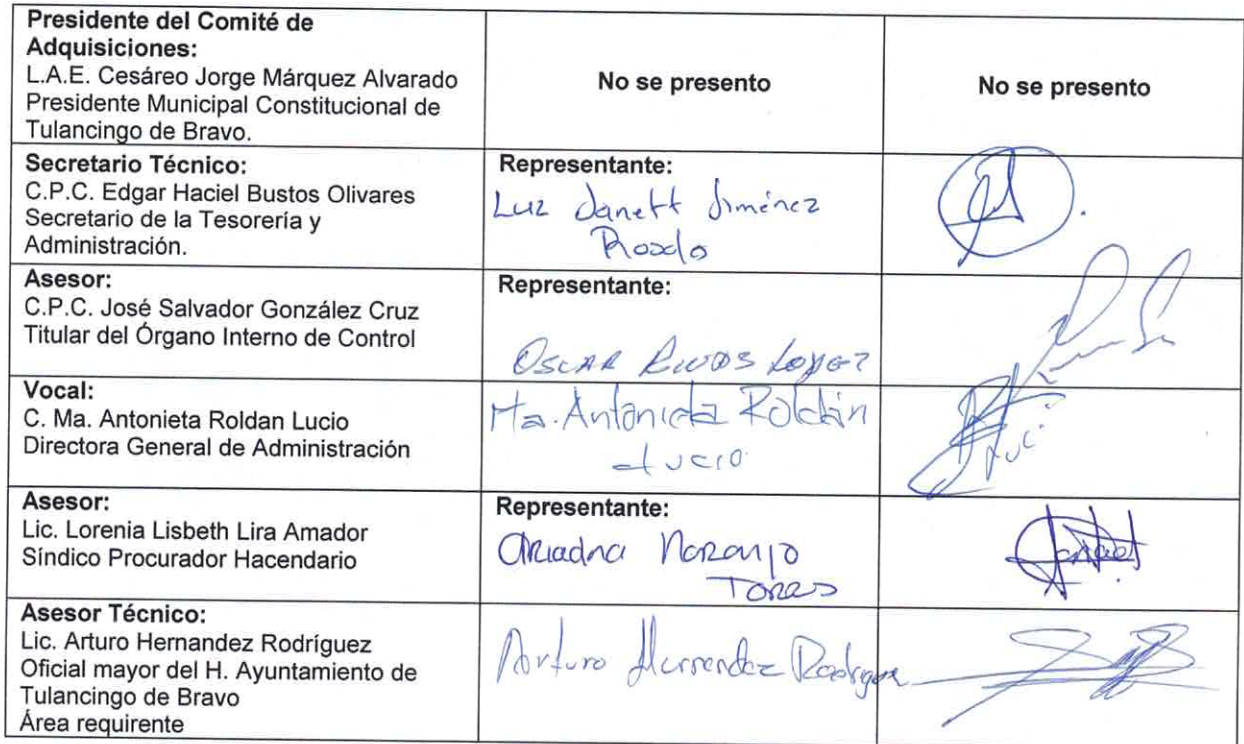 Presidente del Comité de
Adquisiciones:
L.A.E. Cesáreo Jorge Márquez Alvarado
Presidente Municipal Constitucional de
Tulancingo de Bravo.
No se presento
No se presento
Secretario Técnico:
C.P.C. Edgar Haciel Bustos Olivares
Secretario de la Tesorería y
Administración.
Representante:
Luz Janett Jiménez
Rosdo
Asesor:
C.P.C. José Salvador González Cruz
Titular del Órgano Interno de Control
Representante:
OSCAR RIVAS LOPEZ
Vocal:
C. Ma. Antonieta Roldan Lucio
Directora General de Administración
Ma. Antonieta Roldán
Lucio
Asesor:
Lic. Lorenia Lisbeth Lira Amador
Síndico Procurador Hacendario
Representante:
Ariadna Naranjo
Torres
Asesor Técnico:
Lic. Arturo Hernandez Rodríguez
Oficial mayor del H. Ayuntamiento de
Tulancingo de Bravo
Área requirente
Arturo Hernandez Rodrguez